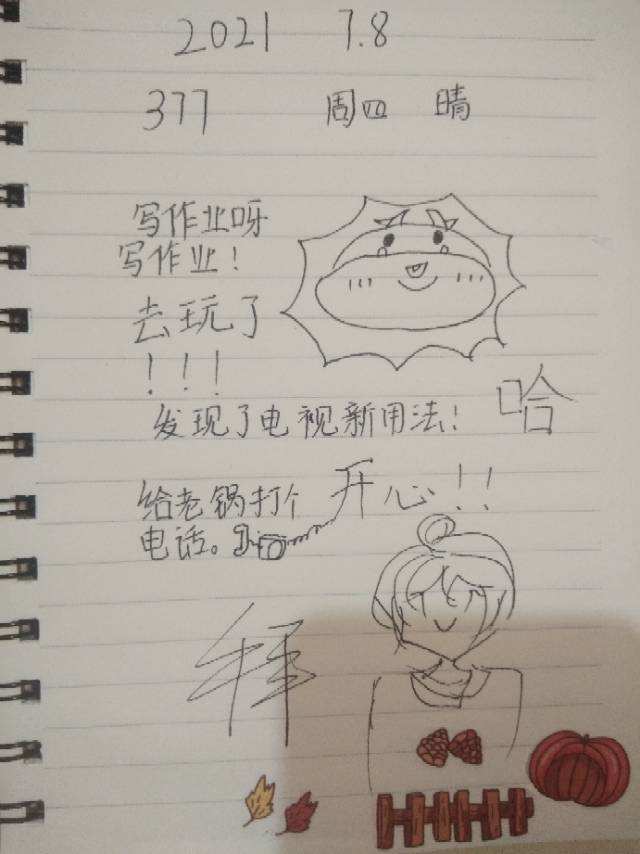 2021 7.8
377 周四 晴
写作业呀
写作业!
去玩了
!!!
发现了电视新用法! 哈
给老锅打个
电话。
开心!!
拜